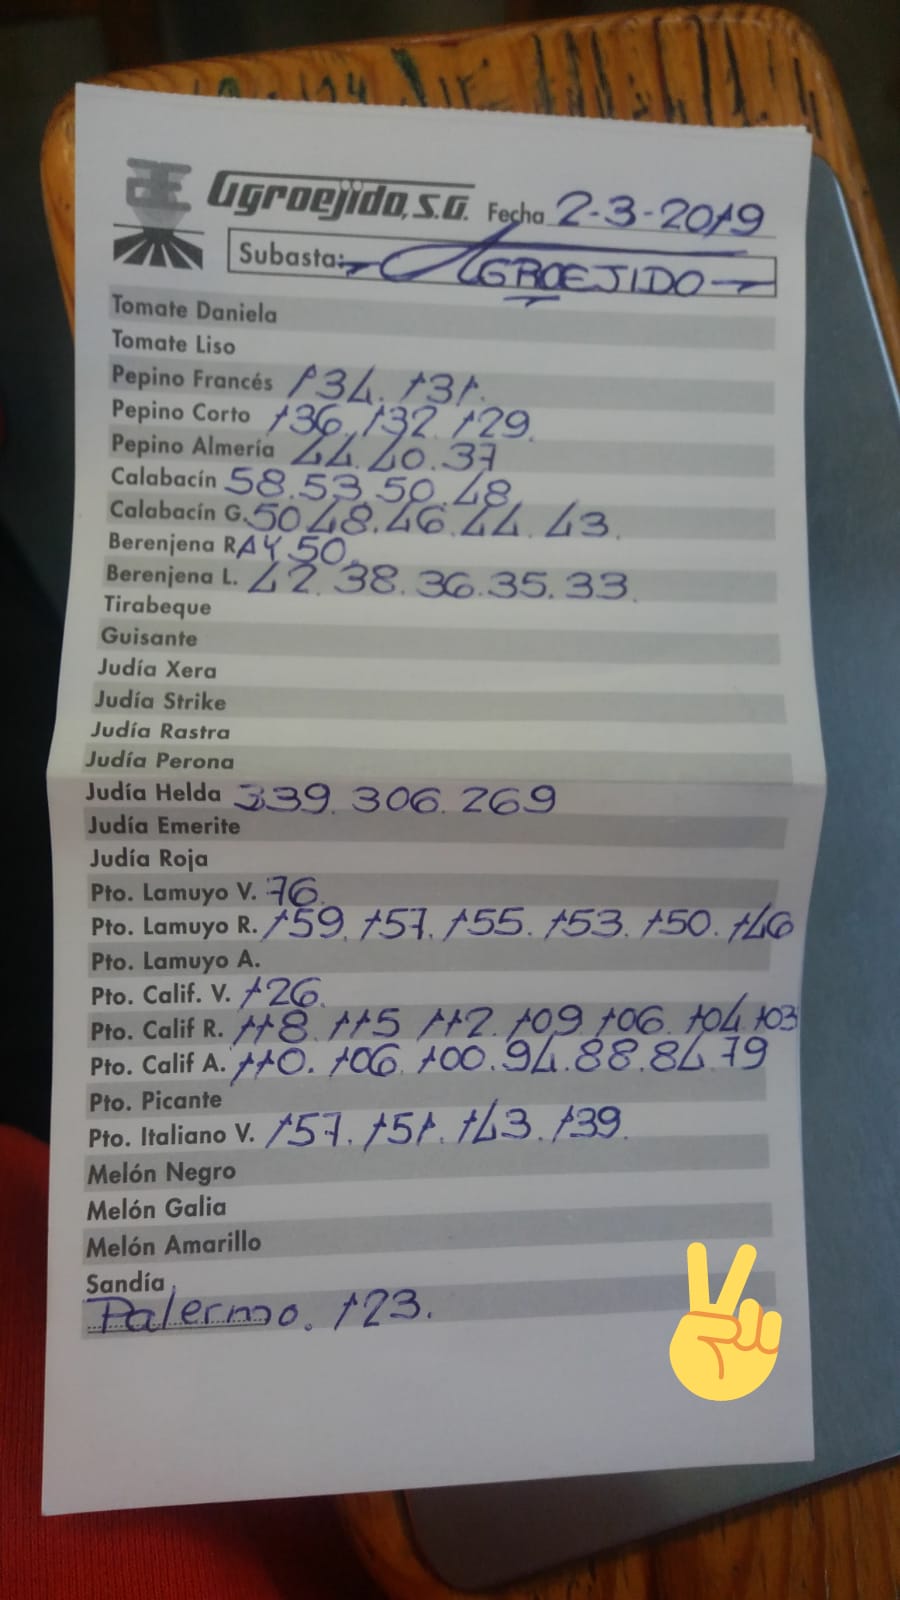 Agroejido, S.A. Fecha 2-3-2019
Subasta: AGROEJIDO
Tomate Daniela
Tomate Liso
Pepino Francés 134. 131.
Pepino Corto 136. 132. 129.
Pepino Almería 44. 40. 37
Calabacín 58. 53. 50. 48
Calabacín G. 50 48. 46. 44. 43.
Berenjena RAY 50.
Berenjena L. 42. 38. 36. 35. 33.
Tirabeque
Guisante
Judía Xera
Judía Strike
Judía Rastra
Judía Perona
Judía Helda 339. 306. 269
Judía Emerite
Judía Roja
Pto. Lamuyo V. 76.
Pto. Lamuyo R. 159. 157. 155. 153. 150. 146
Pto. Lamuyo A.
Pto. Calif. V. 126.
Pto. Calif R. 118. 115 112. 109 106. 104. 103
Pto. Calif A. 110. 106. 100. 94. 88. 84. 79
Pto. Picante
Pto. Italiano V. 157. 151. 143. 139.
Melón Negro
Melón Galia
Melón Amarillo
Sandía
Palermo. 123.